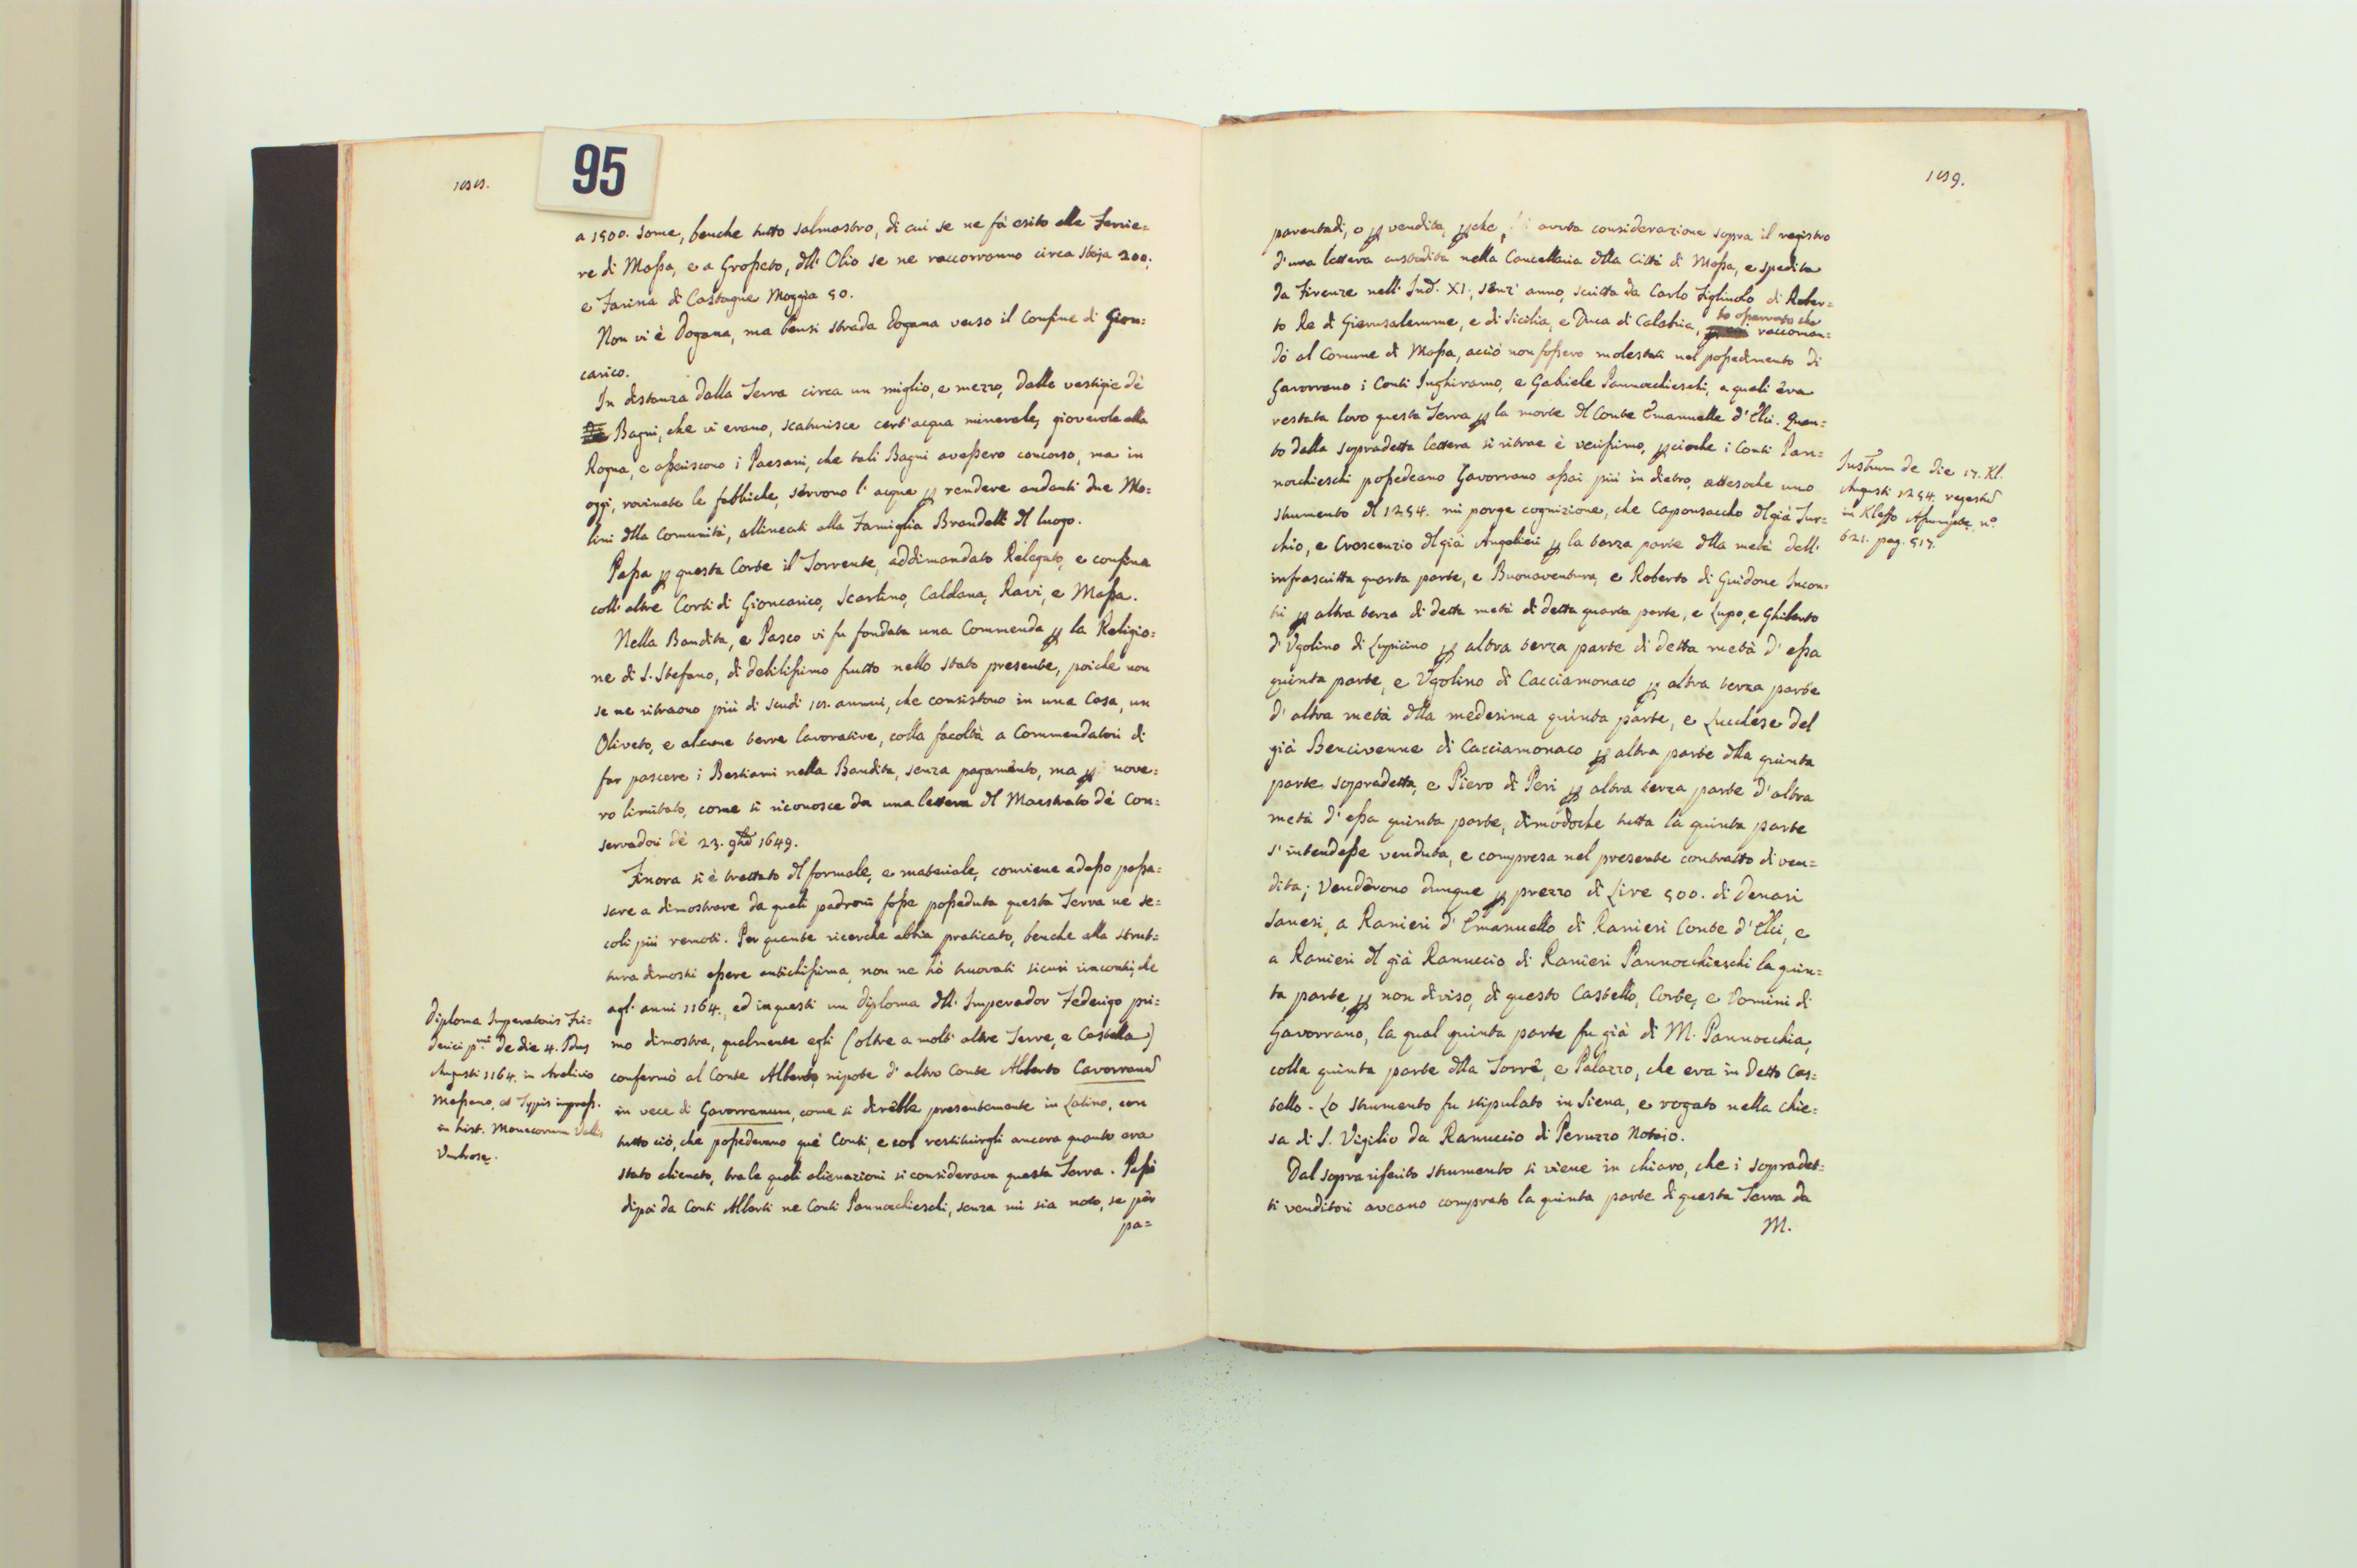 188.
95
a 1500. some, benche tutto salmastro, di cui se ne fà esito alle Ferrie=
re di Massa, e a Grosseto, dll' Olio se ne raccorranno circa staja 200.
e Farina di Castagne Moggia 50.
Non vi è Dogana, ma bensi strada Dogana verso il Confine di Gion=
carico.
In distanza dalla Terra circa un miglio, e mezzo, dalle vestigie de'
Bagni, che vi erano, scaturisce cert'acqua minerale, giovevole alla
Rogna, e asseriscono i Paesani, che tali Bagni avessero concorso, ma in
oggi, rovinate le fabbriche, servono l'acque p rendere andanti due Mo=
lini dlla Comunità, allineati alla Famiglia Brandelli dl luogo.
Passa p questa Corte il Torrente, addimandato Rilegato, e confina
coll'altre Corti di Gioncarico, Scarlino, Caldana, Ravi, e Massa.
Nella Bandita, e Pasco vi fu fondata una Commenda p la Religio=
ne di S. Stefano, di debilissimo frutto nello stato presente, poiche non
se ne ritraono più di scudi 18. annui, che consistono in una Casa, un
Oliveto, e alcune terre lavorative, colla facoltà a Commendatori di
far pascere i Bestiami nella Bandita, senza pagamento, ma p nove=
ro limitato, come si riconosce da una lettera dl Maestrato de' Con=
servadori de' 23. 9bre 1649.
Finora si è trattato dl formale, e materiale, conviene adesso passa=
sare a dimostrare da quali padroni fosse posseduta questa Terra ne se=
coli più remoti. Per quante ricerche abbia praticato, benche alla strut=
tura dimostri essere antichissima, non ne hò truovati sicuri rincontri, che
agl' anni 1164., ed in questi un diploma dll' Imperador Federigo pri=
mo dimostra, qualmente egli (oltre a molt' altre Terre, e Castella)
confermò al Conte Alberto, nipote d'altro Conte Alberto Cavorranū
in vece di Gavorranum, come si direbbe presentemente in Latino, con
tutto ciò, che possedevano que' Conti, e col restituirgli ancora quanto era
stato alienato, tra le quali alienazioni si considerava questa Terra. Passò
dipoi da Conti Alberti ne Conti Pannocchieschi, senza mi sia noto, se pèr
pa=
Diploma Imperatoris Fri=
derici pmi de die 4. Idus
Augusti 1164. in Archivio
Massano, et Typis impress.
in hist. Monacorum Vallis
Umbrosę.
189.
parentadi, o p vendita, pche, avuta considerazione sopra il registro
d'una lettera custodita nella Cancellaria dlla Città di Massa, e spedita
da Firenze nell' Ind. XI., senz' anno, scritta da Carlo Figliuolo di Rober=
to Re di Gierusalemme, e di Sicilia, e Duca di Calabria, raccoman=
to osservato che
dò al Comune di Massa, acciò non fossero molestati nel possedimento di
Gavorrano i Conti Inghiramo, e Gabriele Pannocchieschi, a quali èra
restata loro questa Terra p la morte dl Conte Emanuelle d'Elci. Quan=
to dalla sopradetta lettera si ritrae è verissimo, pcioche i Conti Pan=
nocchieschi possedeano Gavorrano assai più in dietro, attesoche uno
strumento dl 1254. mi porge cognizione, che Caponsaccho dl già Tur=
chio, e Croscenzio dl già Angelieri p la terza parte dlla metà dell'
infrascritta quarta parte, e Buonaventura, e Roberto di Guidone Incon=
tri p altra terza di detta metà di detta quarta parte, e Lupo, e Ghiberto
d'Ugolino di Lupicino p altra terza parte di detta metà d'essa
quinta parte, e Ugolino di Cacciamonaco p altra terza parte
d'altra metà dlla medesima quinta parte, e Lucchese del
già Bencivenne di Cacciamonaco p altra parte dlla quinta
parte sopradetta, e Piero di Peri p altra terza parte d'altra
metà d'essa quinta parte, dimodoche tutta la quinta parte
s'intendesse venduta, e compresa nel presente contratto di ven=
dita; Venderono dunque p prezzo di Lire 500. di Denari
Sanesi, a Ranieri d'Emanuello di Ranieri Conte d'Elci, e
a Ranieri dl già Ranuccio di Ranieri Pannocchieschi la quin=
ta parte, p non diviso, di questo Castello, Corte, e Domini di
Gavorrano, la qual quinta parte fu già di M. Pannocchia,
colla quinta parte dlla Torre, e Palazzo, che era in detto Cas=
tello. Lo strumento fu stipulato in Siena, e rogato nella Chie=
sa di S. Vigilio da Ranuccio di Peruzzo Notaio.
Dal sopra riferito strumento si viene in chiaro, che i sopradet=
ti venditori aveano comprato la quinta parte di questa Terra da
M.
Instrum de die 17. Kl.
Augusti 1254. regestū
in Kleffo Assumptę nº
621. pag. 517.